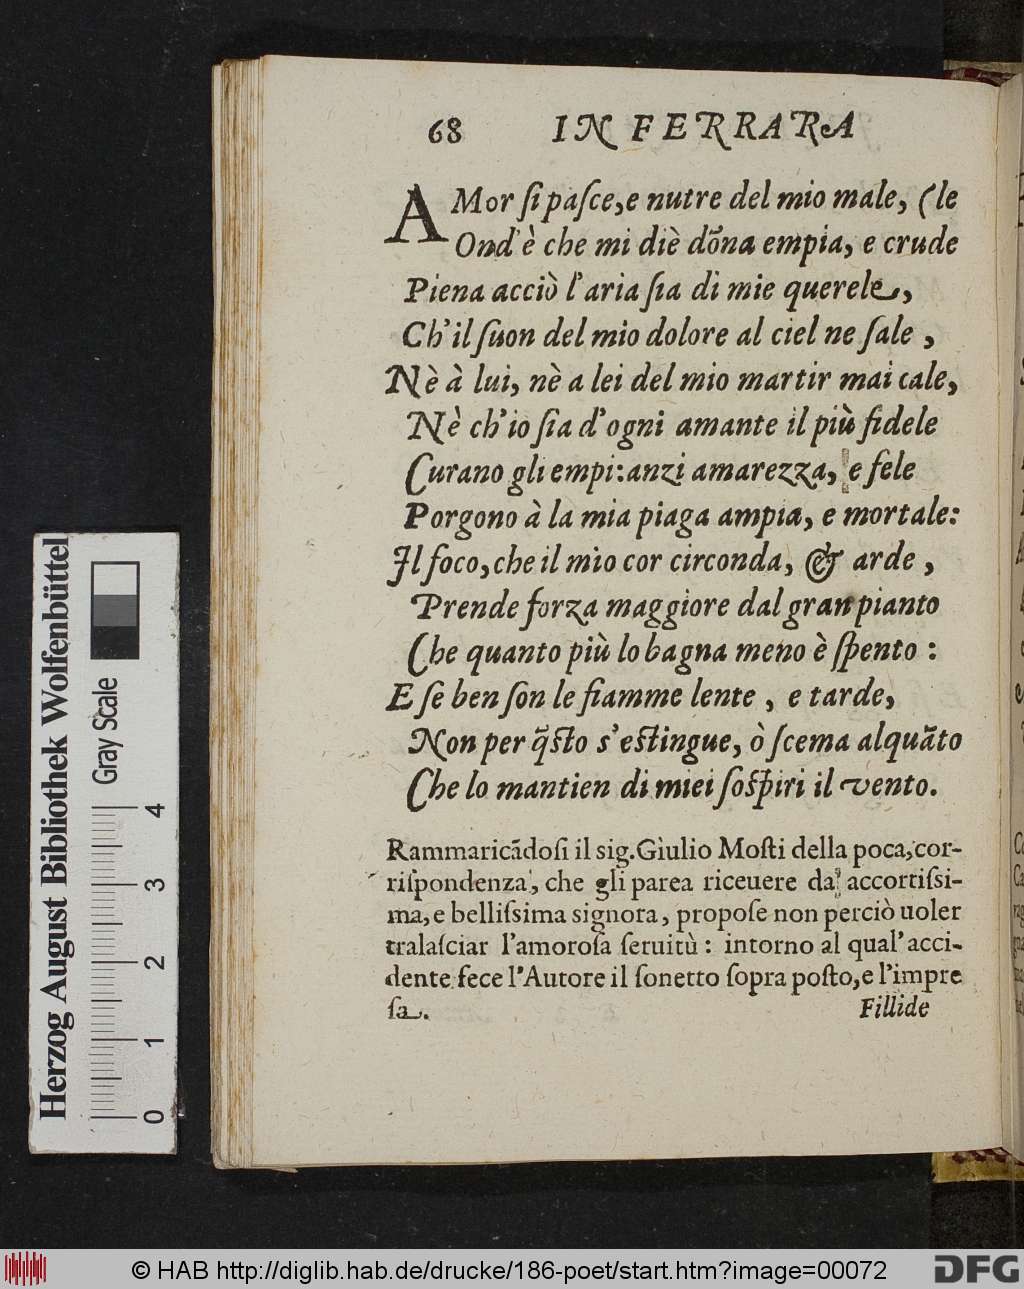 68 IN FERRARA
AMor ſi paſce, e nutre del mio male, (le
Ond'è che mi diè dōna empia, e crude
Piena acciò l'aria ſia di mie querele,
Ch'il ſuon del mio dolore al ciel ne ſale,
Nè à lui, nè a lei del mio martir mai cale,
Nè ch'io ſia d'ogni amante il più fidele
Curano gli empi: anzi amarezza, e fele
Porgono à la mia piaga ampia, e mortale:
Il foco, che il mio cor circonda, & arde,
Prende forza maggiore dal gran pianto
Che quanto più lo bagna meno è ſpento:
E ſe ben ſon le fiamme lente, e tarde,
Non per q̃ſto s'eſtingue, ò ſcema alquāto
Che lo mantien di miei ſoſpiri il vento.
Rammaricādoſi il sig. Giulio Moſti della poca, cor-
riſpondenza, che gli parea riceuere da accortiſsi-
ma, e belliſsima signora, propoſe non perciò uoler
tralaſciar l'amoroſa ſeruitù: intorno al qual'acci-
dente fece l'Autore il ſonetto ſopra poſto, e l'impre
ſa.
Fillide
Herzog August Bibliothek Wolfenbüttel
Gray Scale
0 1 2 3 4
© HAB http://diglib.hab.de/drucke/186-poet/start.htm?image=00072
DFG